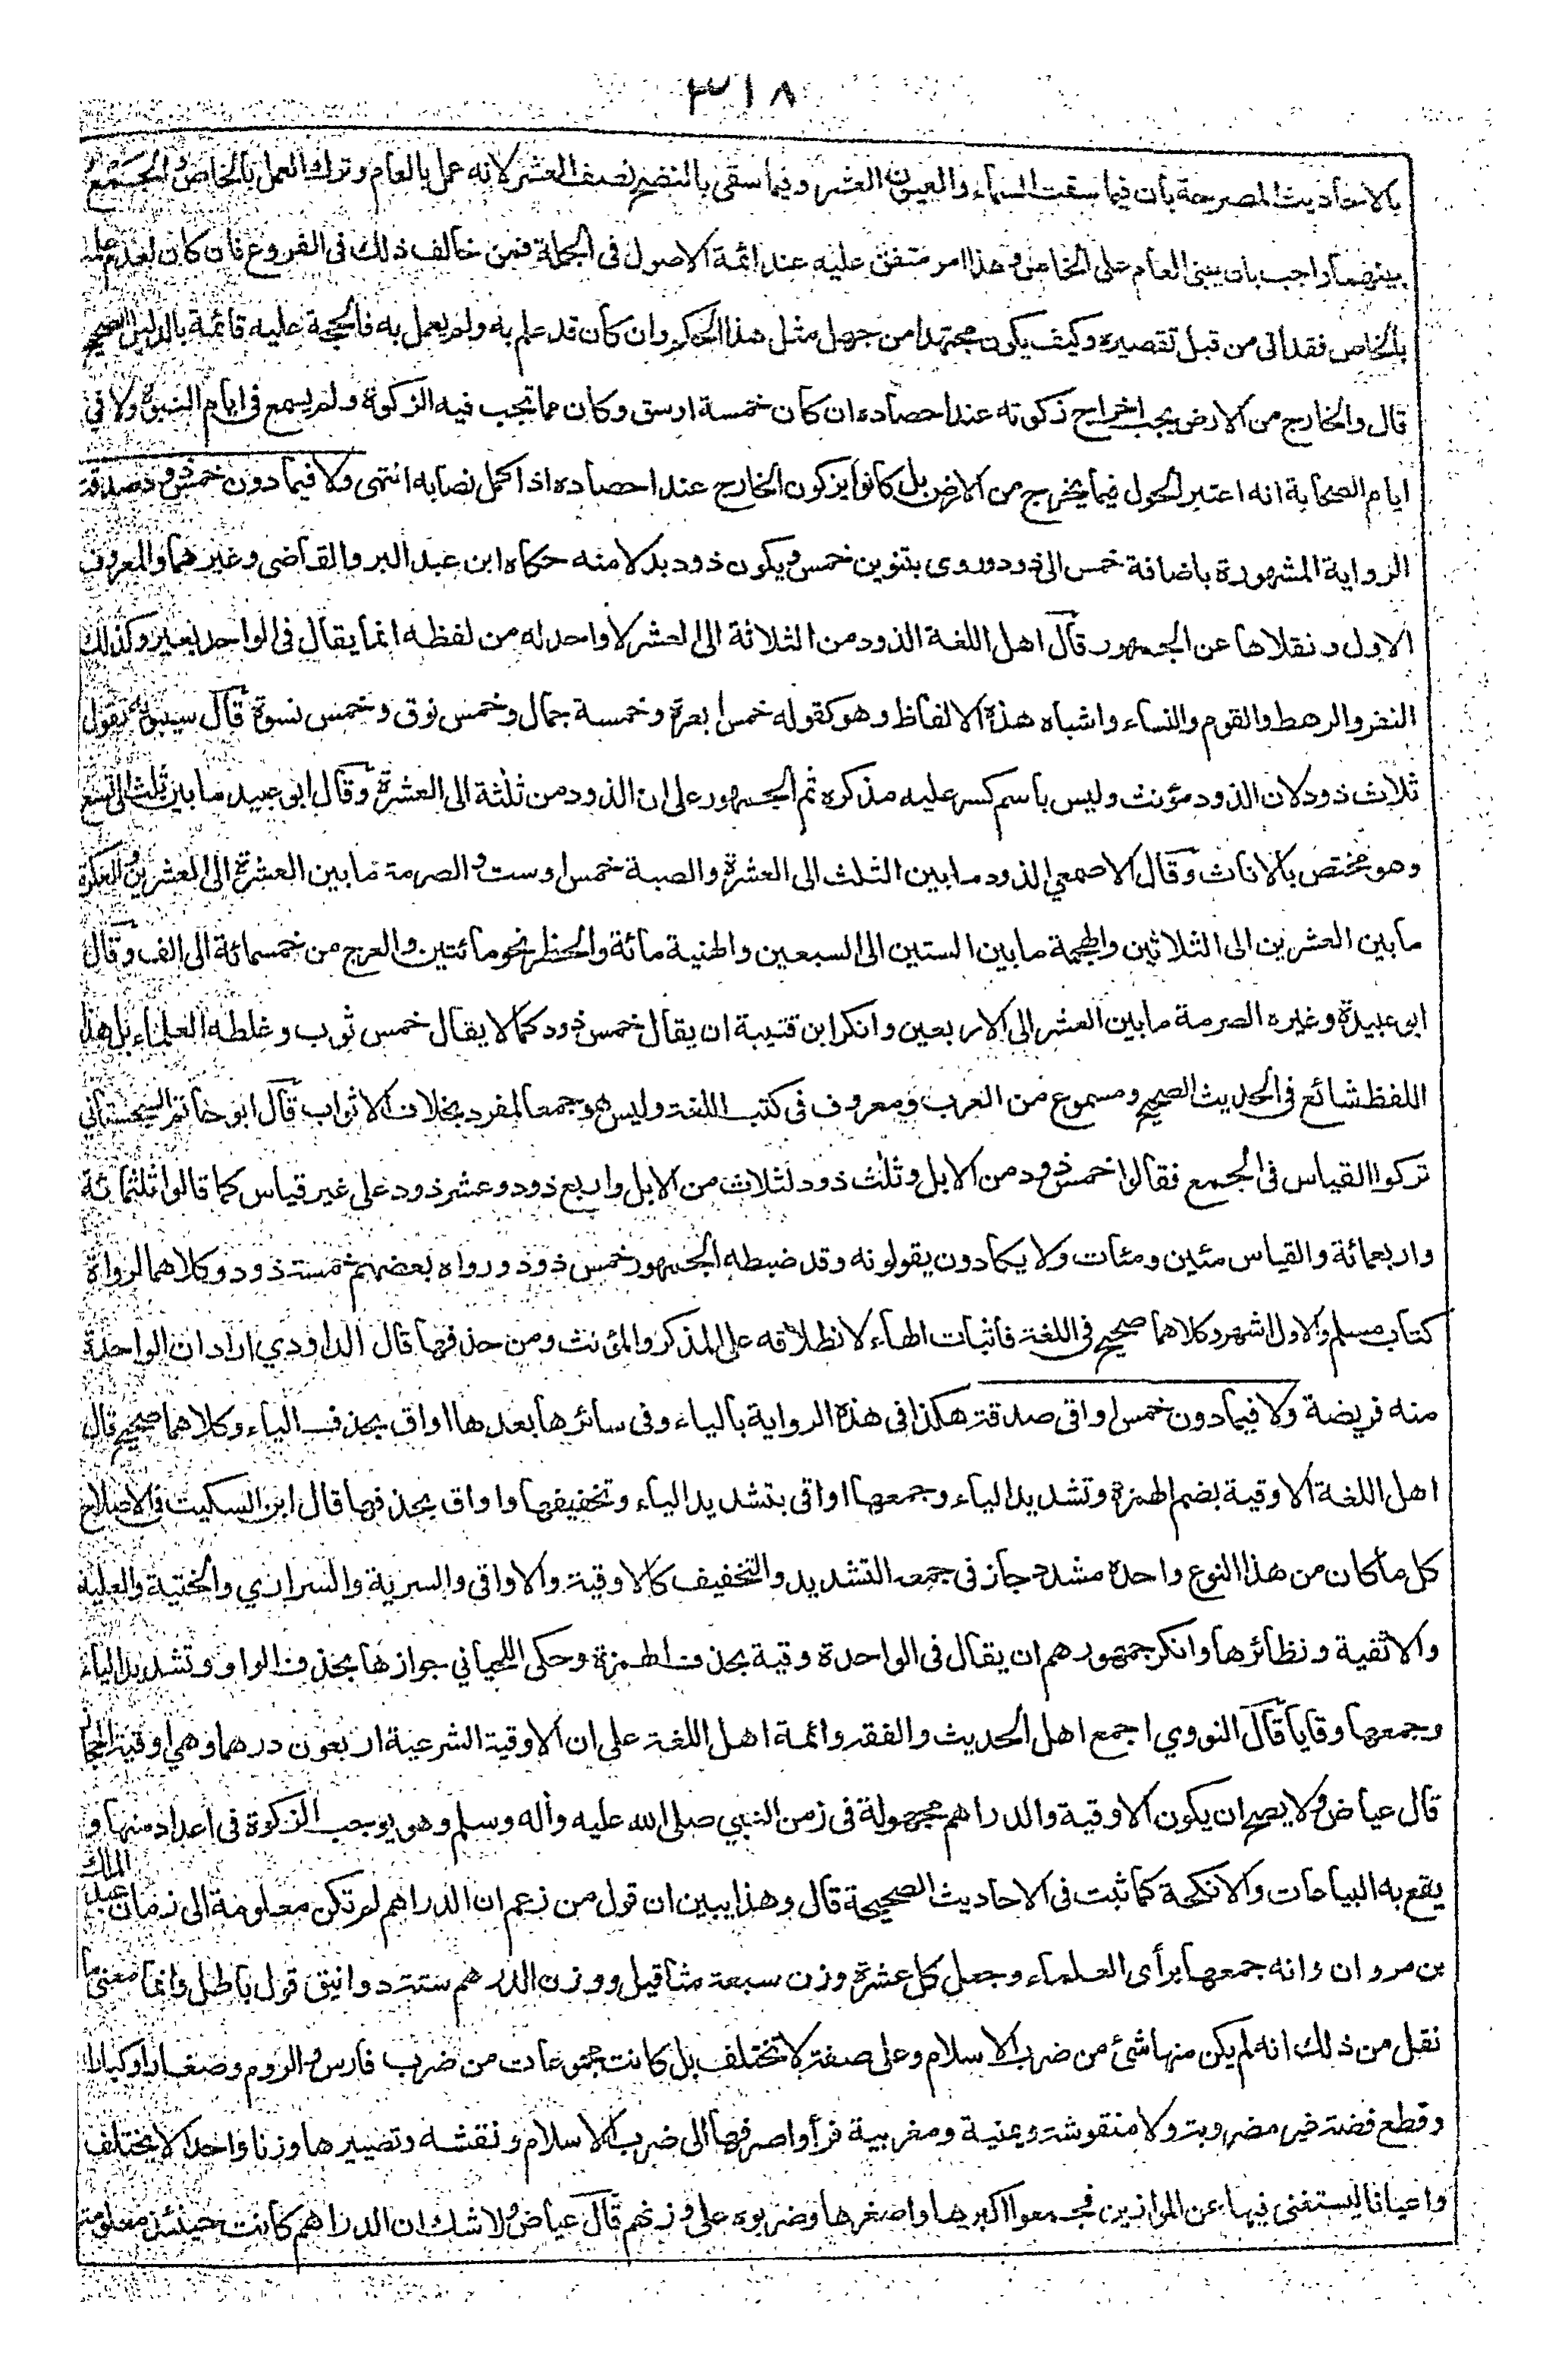 ٣١٨
بالاحاديث المصرحة بان فيما سقت السماء والعيون العشر وفيما سقى بالنضح نصف العشر لانه عمل بالعام وترك العمل بالخاص والجمع
بينهما واجب بان يبنى العام على الخاص وهذا امر متفق عليه عند ائمة الاصول فى الجملة فمن خالف ذلك فى الفروع فان كان لعدم علمه
بالخاص فقد اتى من قبل تقصيره وكيف يكون مجتهدا من جهل مثل هذا الحكم وان كان قد علم به ولم يعمل به فالحجة عليه قائمة بالدليل الصحيح
قال والخارج من الارض يجب اخراج زكوته عند احصاده ان كان خمسة اوسق وكان مما تجب فيه الزكوة ولم يسمع فى ايام النبوة ولا فى
ايام الصحابة انه اعتبر الحول فيما يخرج من الارض بل كانوا يزكون الخارج عند احصاده اذا كمل نصابه انتهى ولا فيما دون خمس ذود صدقة
الرواية المشهورة باضافة خمس الى ذود وروى بتنوين خمس ويكون ذود بدلا منه حكاه ابن عبد البر والقاضى وغيرهما والمعروف
الاول ونقلاها عن الجمهور قال اهل اللغة الذود من الثلاثة الى العشر لا واحد له من لفظه انما يقال فى الواحد بعير وكذلك
النفر والرهط والقوم والنساء واشباه هذه الالفاظ وهو كقوله خمس ابعرة وخمسة جمال وخمس نوق وخمس نسوة قال سيبويه تقول
ثلاث ذود لان الذود مؤنث وليس باسم كسر عليه مذكره ثم الجمهور على ان الذود من ثلثة الى العشرة وقال ابو عبيد ما بين ثلث الى تسع
وهو مختص بالاناث وقال الاصمعي الذود ما بين الثلث الى العشرة والصبة خمس او ست والصرمة ما بين العشرة الى العشرين والعكرة
ما بين العشرين الى الثلاثين والهجمة ما بين الستين الى السبعين والهنية مائة والحظر نحو مائتين والعرج من خمسمائة الى الف وقال
ابو عبيدة وغيره الصرمة ما بين العشر الى الاربعين وانكر ابن قتيبة ان يقال خمس ذود كما لا يقال خمس ثوب وغلطه العلماء بل هذا
اللفظ شائع فى الحديث الصحيح ومسموع من العرب ومعروف فى كتب اللغة وليس هو جمعا لمفرد بخلاف الاثواب قال ابو حاتم السجستاني
تركوا القياس فى الجمع فقالوا خمس ذود من الابل وثلث ذود لثلاث من الابل واربع ذود وعشر ذود على غير قياس كما قالوا ثلثمائة
واربعمائة والقياس مئين ومئات ولا يكادون يقولونه وقد ضبطه الجمهور خمس ذود ورواه بعضهم خمسة ذود وكلاهما لرواة
كتاب مسلم والاول اشهر وكلاهما صحيح فى اللغة فاثبات الهاء لانطلاقه على المذكر والمؤنث ومن حذفها قال الداودي اراد ان الواحدة
منه فريضة ولا فيما دون خمس اواقى صدقة هكذا فى هذه الرواية بالياء وفى سائرها بعدها اواق بحذف الياء وكلاهما صحيح قال
اهل اللغة الاوقية بضم الهمزة وتشديد الياء وجمعها اواقى بتشديد الياء وتخفيفها واواق بحذفها قال ابن السكيت فى الاصلاح
كل ما كان من هذا النوع واحده مشدد جاز فى جمعه التشديد والتخفيف كالاوقية والاواقى والسرية والسراري والختية والعلية
والاثفية ونظائرها وانكر جمهورهم ان يقال فى الواحدة وقية بحذف الهمزة وحكى اللحياني جوازها بحذف الواو وتشديد الياء
وجمعها وقايا قال النووي اجمع اهل الحديث والفقه وائمة اهل اللغة على ان الاوقية الشرعية اربعون درهما وهي اوقية الحجاز
قال عياض ولا يصح ان يكون الاوقية والدراهم مجهولة فى زمن النبي صلى الله عليه وآله وسلم وهو يوجب الزكوة فى اعداد منها و
يقع به البياعات والانكحة كما ثبت فى الاحاديث الصحيحة قال وهذا يبين ان قول من زعم ان الدراهم لم تكن معلومة الى زمان عبد الملك
بن مروان وانه جمعها برأى العلماء وجعل كل عشرة وزن سبعة مثاقيل ووزن الدرهم ستة دوانيق قول باطل وانما معنى ما
نقل من ذلك انه لم يكن منها شئ من ضرب الاسلام وعلى صفة لا تختلف بل كانت مجموعات من ضرب فارس والروم وصغارا وكبارا
وقطع فضة غير مضروبة ولا منقوشة ويمنية ومغربية فرأوا صرفها الى ضرب الاسلام ونقشه وتصييرها وزنا واحدا لا يختلف
واعيانا ليستغنى فيها عن الموازين فجمعوا اكبرها واصغرها وضربوه على وزنهم قال عياض ولا شك ان الدراهم كانت حينئذ معلومة